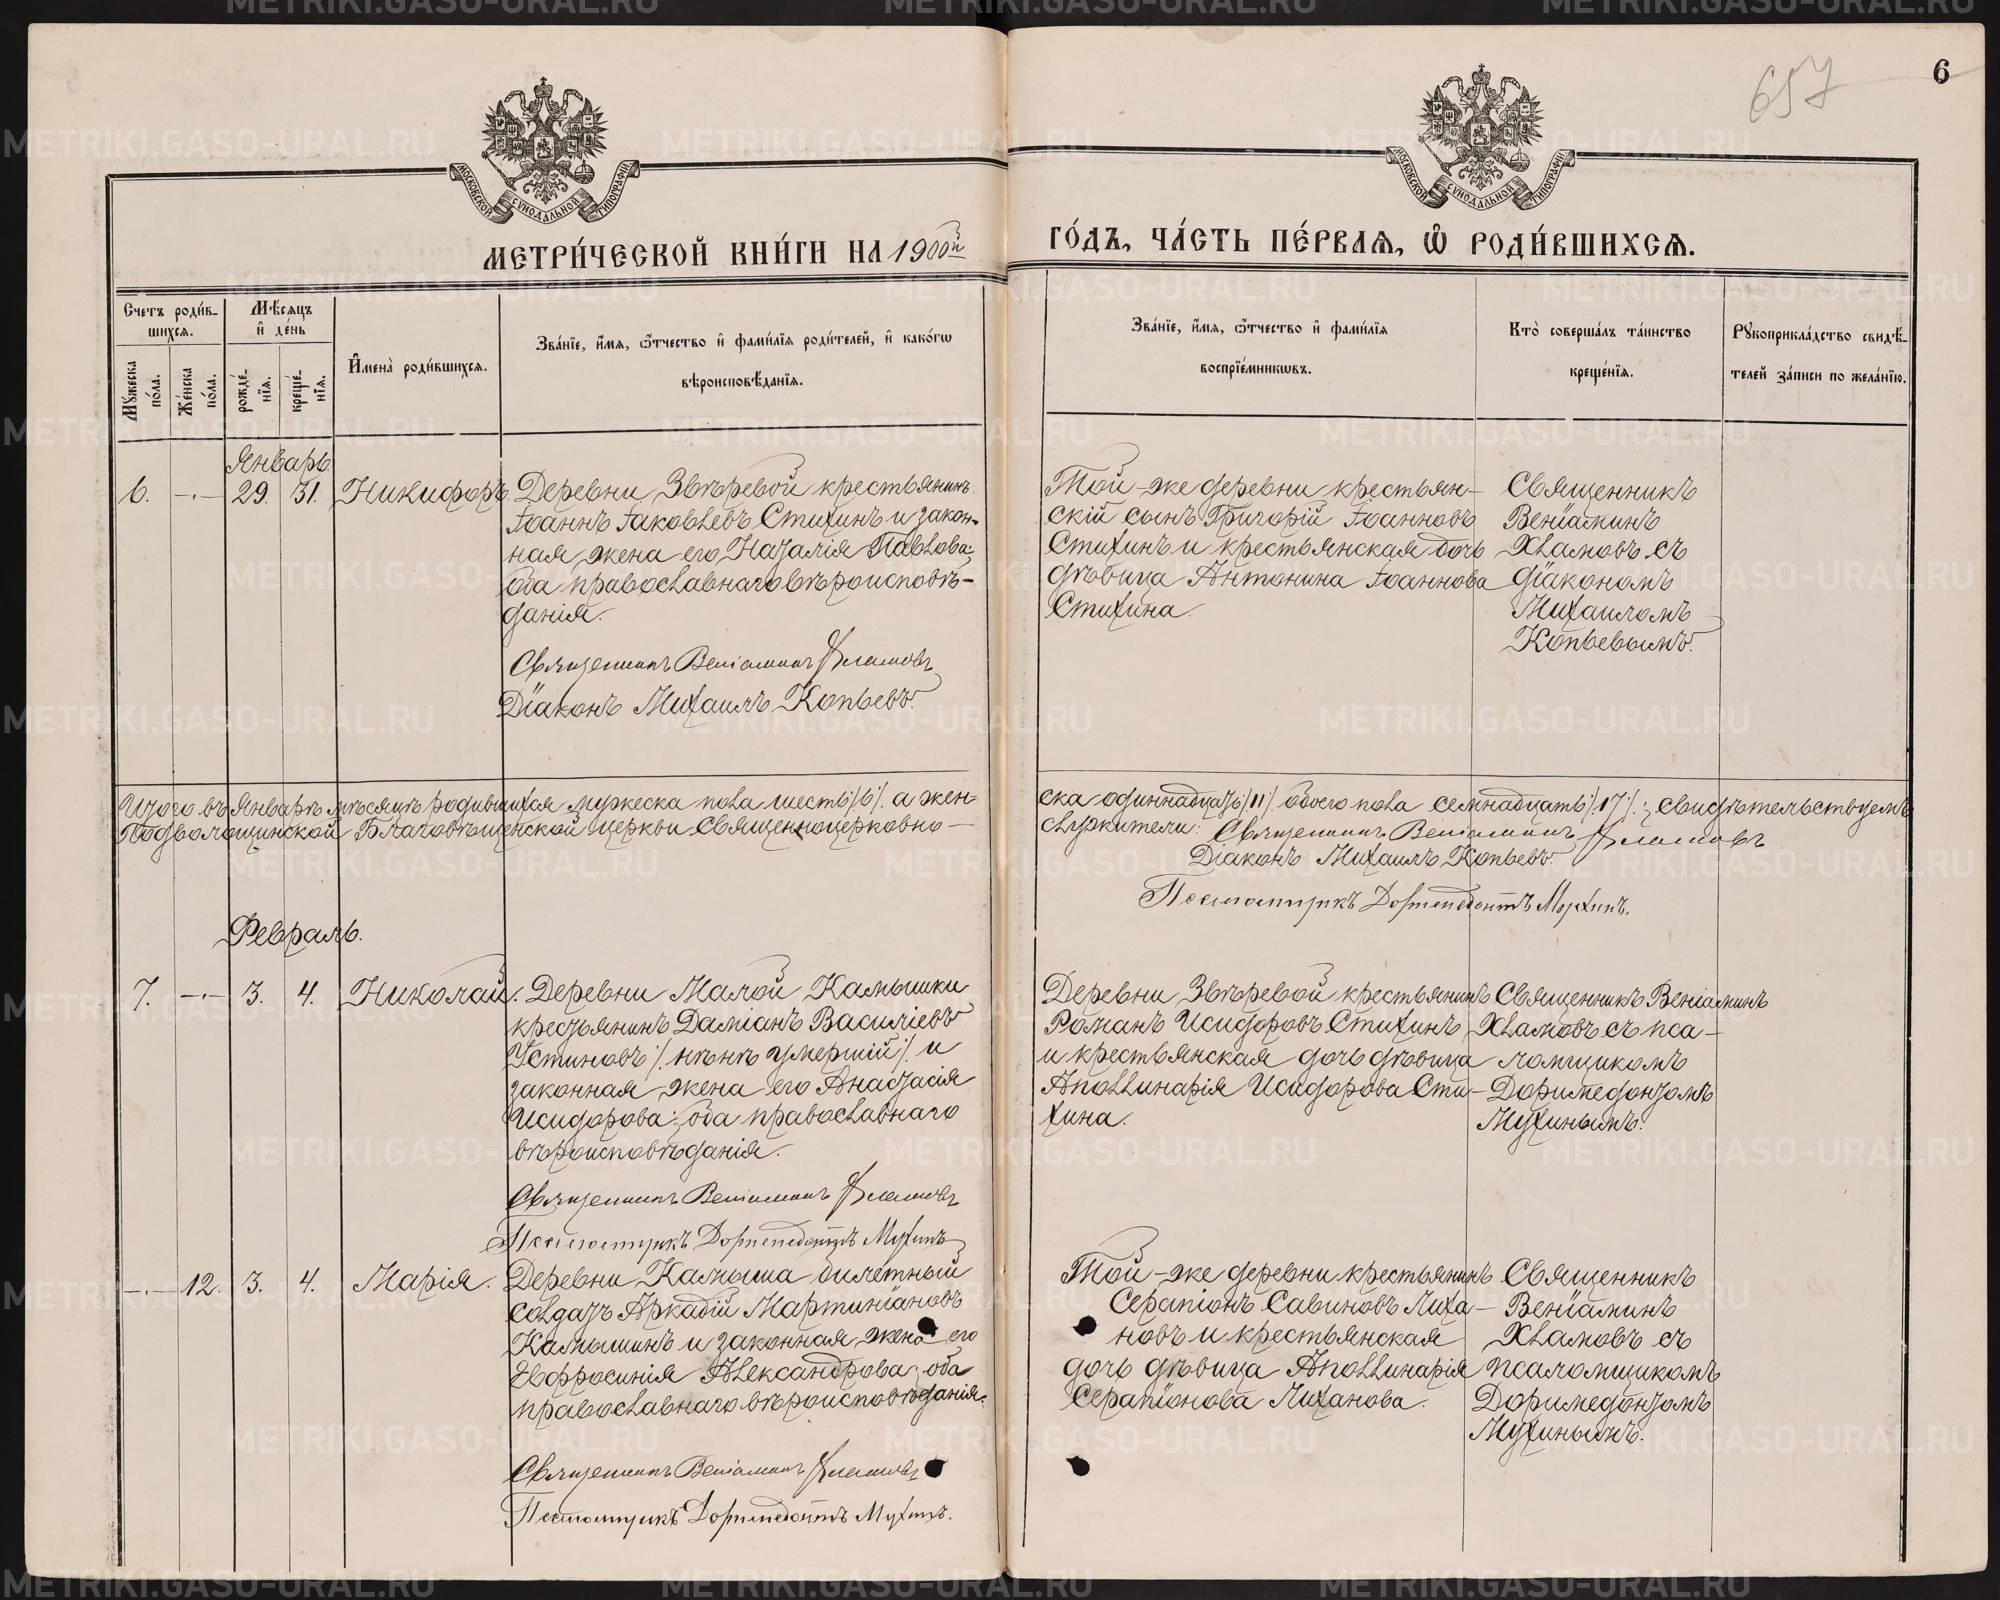 657
6
МОСКОВСКОЙ СУНОДАЛЬНОЙ ТИПОГРАФІИ
МОСКОВСКОЙ СУНОДАЛЬНОЙ ТИПОГРАФІИ
МЕТРИ́ЧЕСКОЙ КНИ́ГИ НА 1900й
ГО́ДЪ, ЧА́СТЬ ПЕ́РВАѦ, Ѽ РОДИ́ВШИХСѦ.
Счетъ роди́в-
шихсѧ.
Мѣ́сѧцъ
и҆ де́нь
Мꙋ́жеска
по́ла.
Же́нска
по́ла.
рожде́-
нїѧ.
креще́-
нїѧ.
И҆мена̀ роди́вшихсѧ.
Зва́нїе, и҆́мѧ, ѻ҆́тчество и҆ фами́лїѧ роди́телей, и҆ како́гѡ
вѣроисповѣ́данїѧ.
Зва́нїе, и҆́мѧ, ѻ҆́тчество и҆ фами́лїѧ
воспрїе́мникѡвъ.
Кто̀ соверша́лъ та́инство
креще́нїѧ.
Рꙋкоприкла́дство свидѣ́-
телей за́писи по жела́нїю.
Январь.
6. -·- 29. 31. Никифоръ.
Деревни Звѣревой крестьянинъ
Іоаннъ Іаковлевъ Стихинъ и закон-
ная жена его Наталія Павлова;
оба православнаго вѣроисповѣ-
данія.
Священникъ Веніаминъ Хламовъ
Діаконъ Михаилъ Копьевъ.
Той-же деревни крестьян-
скій сынъ Григорій Іоанновъ
Стихинъ и крестьянская дочь
дѣвица Антонина Іоаннова
Стихина.
Священникъ
Веніаминъ
Хламовъ съ
діакономъ
Михаиломъ
Копьевымъ.
Итого въ Январѣ мѣсяцѣ родившихся мужеска пола шесть /6/. а жен-
ска одиннадцать /11/ обоего пола семнадцать /17/.; свидѣтельствуемъ
Подволошинской Благовѣщенской церкви Священноцерковно-
служители: Священникъ Веніаминъ Хламовъ
Діаконъ Михаилъ Копьевъ.
Псаломщикъ Доримедонтъ Мухинъ.
Февраль.
7. -·- 3. 4. Николай.
Деревни Малой Камышки
крестьянинъ Даміанъ Василіевъ
Устиновъ /. нынѣ умершій /. и
законная жена его Анастасія
Исидорова; оба православнаго
вѣроисповѣданія.
Священникъ Веніаминъ Хламовъ
Псаломщикъ Доримедонтъ Мухинъ
Деревни Звѣревой крестьянинъ
Романъ Исидоровъ Стихинъ
и крестьянская дочь дѣвица
Аполлинарія Исидорова Сти-
хина.
Священникъ Веніаминъ
Хламовъ съ пса-
ломщикомъ
Доримедонтомъ
Мухинымъ.
-·- 12. 3. 4. Марія.
Деревни Камыша билетный
солдатъ Аркадій Мартиніановъ
Камышинъ и законная жена его
Евфросинія Александрова; оба
православнаго вѣроисповѣданія.
Священникъ Веніаминъ Хламовъ
Псаломщикъ Доримедонтъ Мухинъ.
Той-же деревни крестьянинъ
Серапіонъ Савиновъ Лиха-
новъ и крестьянская
дочь дѣвица Аполлинарія
Серапіонова Лиханова.
Священникъ
Веніаминъ
Хламовъ съ
псаломщикомъ
Доримедонтомъ
Мухинымъ.
METRIKI.GASO-URAL.RU